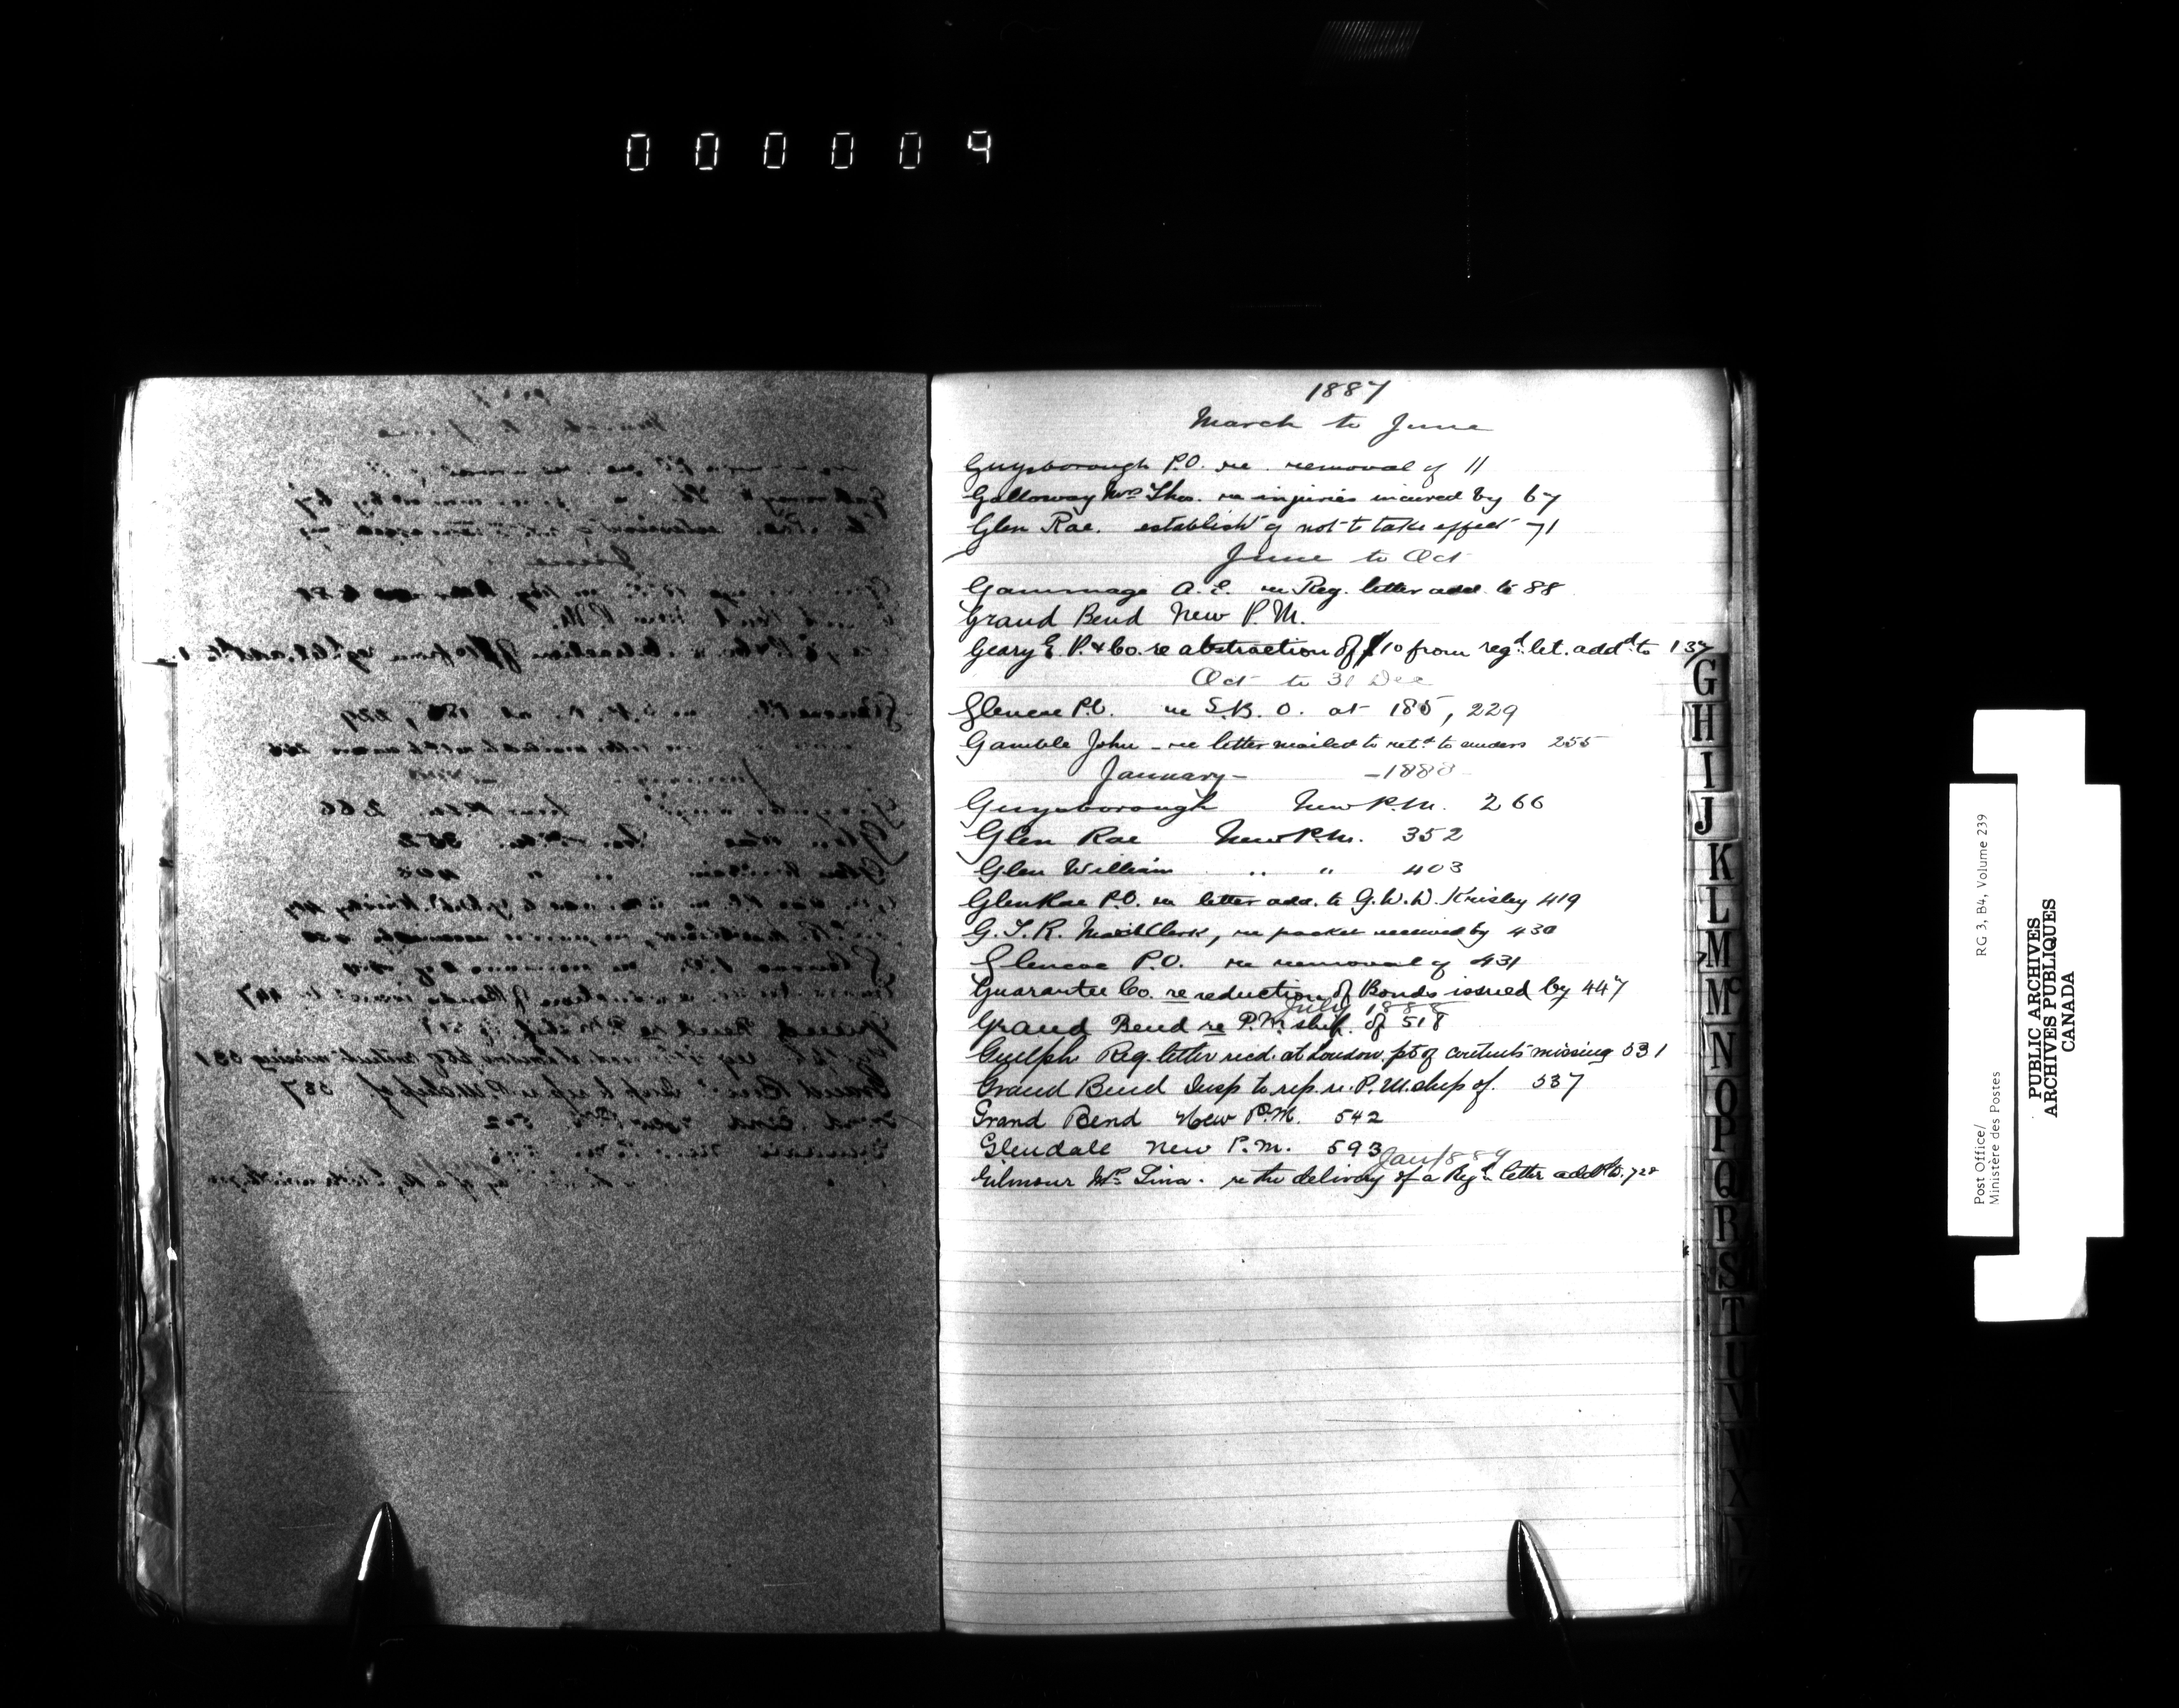 000009
1887
March to June
Guysborough P.O. re. removal of 11
Galloway Mrs Thos. re injuries incured by 67
Glen Rae. establish't of not to take effect 71
June to Oct
Gammage A. E. re Reg. letter add. to 88
Grand Bend New P. M.
Geary E. P. & Co. re abstraction of $10 from regd. let. addd. to 137
Oct to 31 Dec
Glencoe P.O. re S.B. O. at 185, 229
Gamble John - re letter mailed to retd to 255
January - - 1888
Guysborough New P.M. 266
Glen Rae New P.M. 352
Glen William " " 403
Glen Rae P.O. re letter add. to G. W. W. Krisley 419
G. T. R. Mail Clerk, re packet received by 430
Glencoe P.O. re removal of 431
Guarantee Co. re reduction of Bonds issued by 447
July 1888
Grand Bend re P.M.ship. of 518
Guelph Reg. letter recd. at London. pt of contents missing 531
Grand Bend Insp to rep. re. P.M.ship of. 537
Grand Bend New P.M. 542
Glendale New P.M. 593
Jan/1889
Gilmour Mrs Lina. re the delivery of a Regd letter addd to. 728
G
H
I
J
K
L
M
Mc
N
O
P
Q
R
S
T
U
V
W
X
Y
Post Office/ RG 3, B4, Volume 239
Ministère des Postes
PUBLIC ARCHIVES
ARCHIVES PUBLIQUES
CANADA